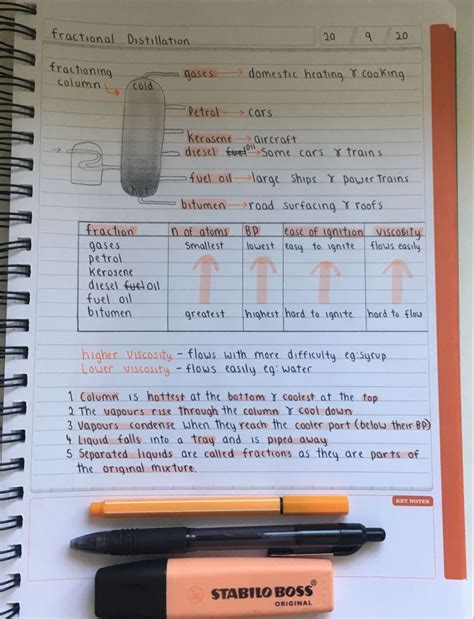 fractional Distillation 20 / 9 / 20
fractioning column
cold
hot
gases → domestic heating & cooking
Petrol → cars
Kerosene → aircraft
diesel fuel oil → Some cars & trains
fuel oil → large ships & power trains
bitumen → road surfacing & roofs
fraction n of atoms BP ease of ignition viscosity
gases smallest lowest easy to ignite flows easily
petrol
kerosene
diesel fuel oil
fuel oil
bitumen greatest highest hard to ignite hard to flow
higher viscosity - flows with more difficulty eg: syrup
Lower viscosity - flows easily eg: water
1 Column is hottest at the bottom & coolest at the top
2 The vapours rise through the column & cool down
3 Vapours condense when they reach the cooler part (below their BP)
4 Liquid falls into a tray and is piped away
5 Separated liquids are called fractions as they are parts of
the original mixture.
KEY NOTES
STABILO BOSS
ORIGINAL